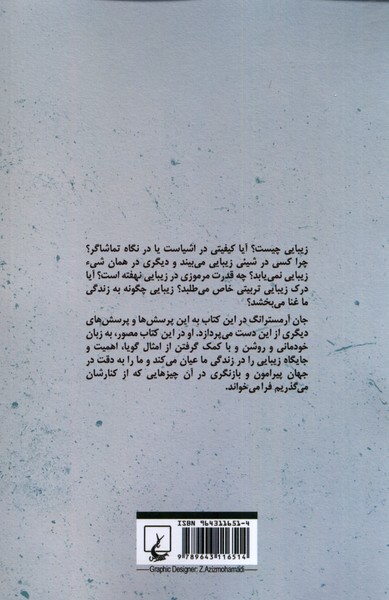 زیبایی چیست؟ آیا کیفیتی در اشیاست یا در نگاه تماشاگر؟
چرا کسی در شیئی زیبایی می‌بیند و دیگری در همان شیء
زیبایی نمی‌یابد؟ چه قدرت مرموزی در زیبایی نهفته است؟ آیا
درک زیبایی تربیتی خاص می‌طلبد؟ زیبایی چگونه به زندگی
ما غنا می‌بخشد؟
جان آرمسترانگ در این کتاب به این پرسش‌ها و پرسش‌های
دیگری از این دست می‌پردازد. او در این کتاب مصور، به زبان
خودمانی و روشن و با کمک گرفتن از امثال گویا، اهمیت و
جایگاه زیبایی را در زندگی ما عیان می‌کند و ما را به دقت در
جهان پیرامون و بازنگری در آن چیزهایی که از کنارشان
می‌گذریم فرا می‌خواند.
ISBN 964311651-4
9 789643 116514
Graphic Designer; Z.Azizmohamadi